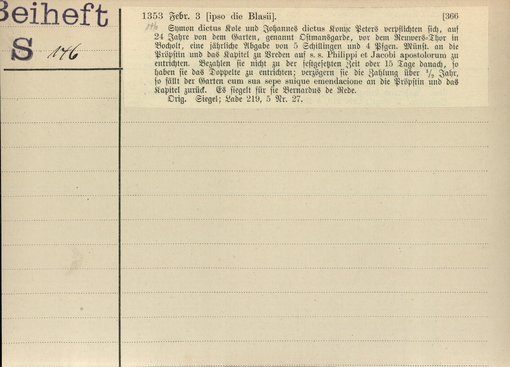 Beiheft
S 146
1353 Febr. 3 [ipso die Blasii]. [366
146
Symon dictus Kole und Johannes dictus Konyx Peters verpflichten sich, auf
24 Jahre von dem Garten, genannt Ostmansgarde, vor dem Neuwers-Thor in
Bocholt, eine jährliche Abgabe von 5 Schillingen und 4 Pfgen. Münst. an die
Pröpstin und das Kapitel zu Vreden auf s. s. Philippi et Jacobi apostolorum zu
entrichten. Bezahlen sie nicht zu der festgesetzten Zeit oder 15 Tage danach, so
haben sie das Doppelte zu entrichten; verzögern sie die Zahlung über 1/2 Jahr,
so fällt der Garten cum sua sepe suique emendacione an die Pröpstin und das
Kapitel zurück. Es siegelt für sie Bernardus de Rede.
Orig. Siegel; Lade 219, 5 Nr. 27.